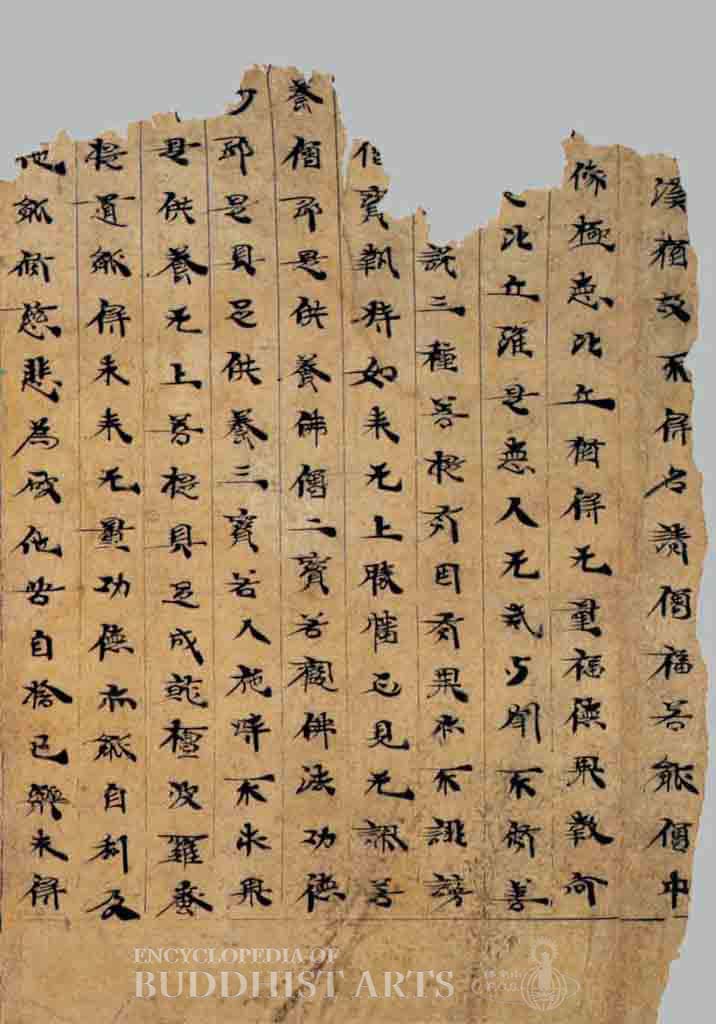 漢猶故不得名請僧福若能僧中
像極惡比丘猶得无量福德果報何
比丘雖是惡人无戒多聞不修善
說三種菩提有因有果亦不誹謗
僧寶執持如来无上勝幡正見无謬若
養僧即是供養佛僧二寶若觀佛法功德
即是具足供養三寶若人施時不求果
是供養无上菩提具足成就檀波羅蜜
提道能得未来无量功德亦能自利及
他能修慈悲為破他苦自捨己樂未得
ENCYCLOPEDIA OF
BUDDHIST ARTS